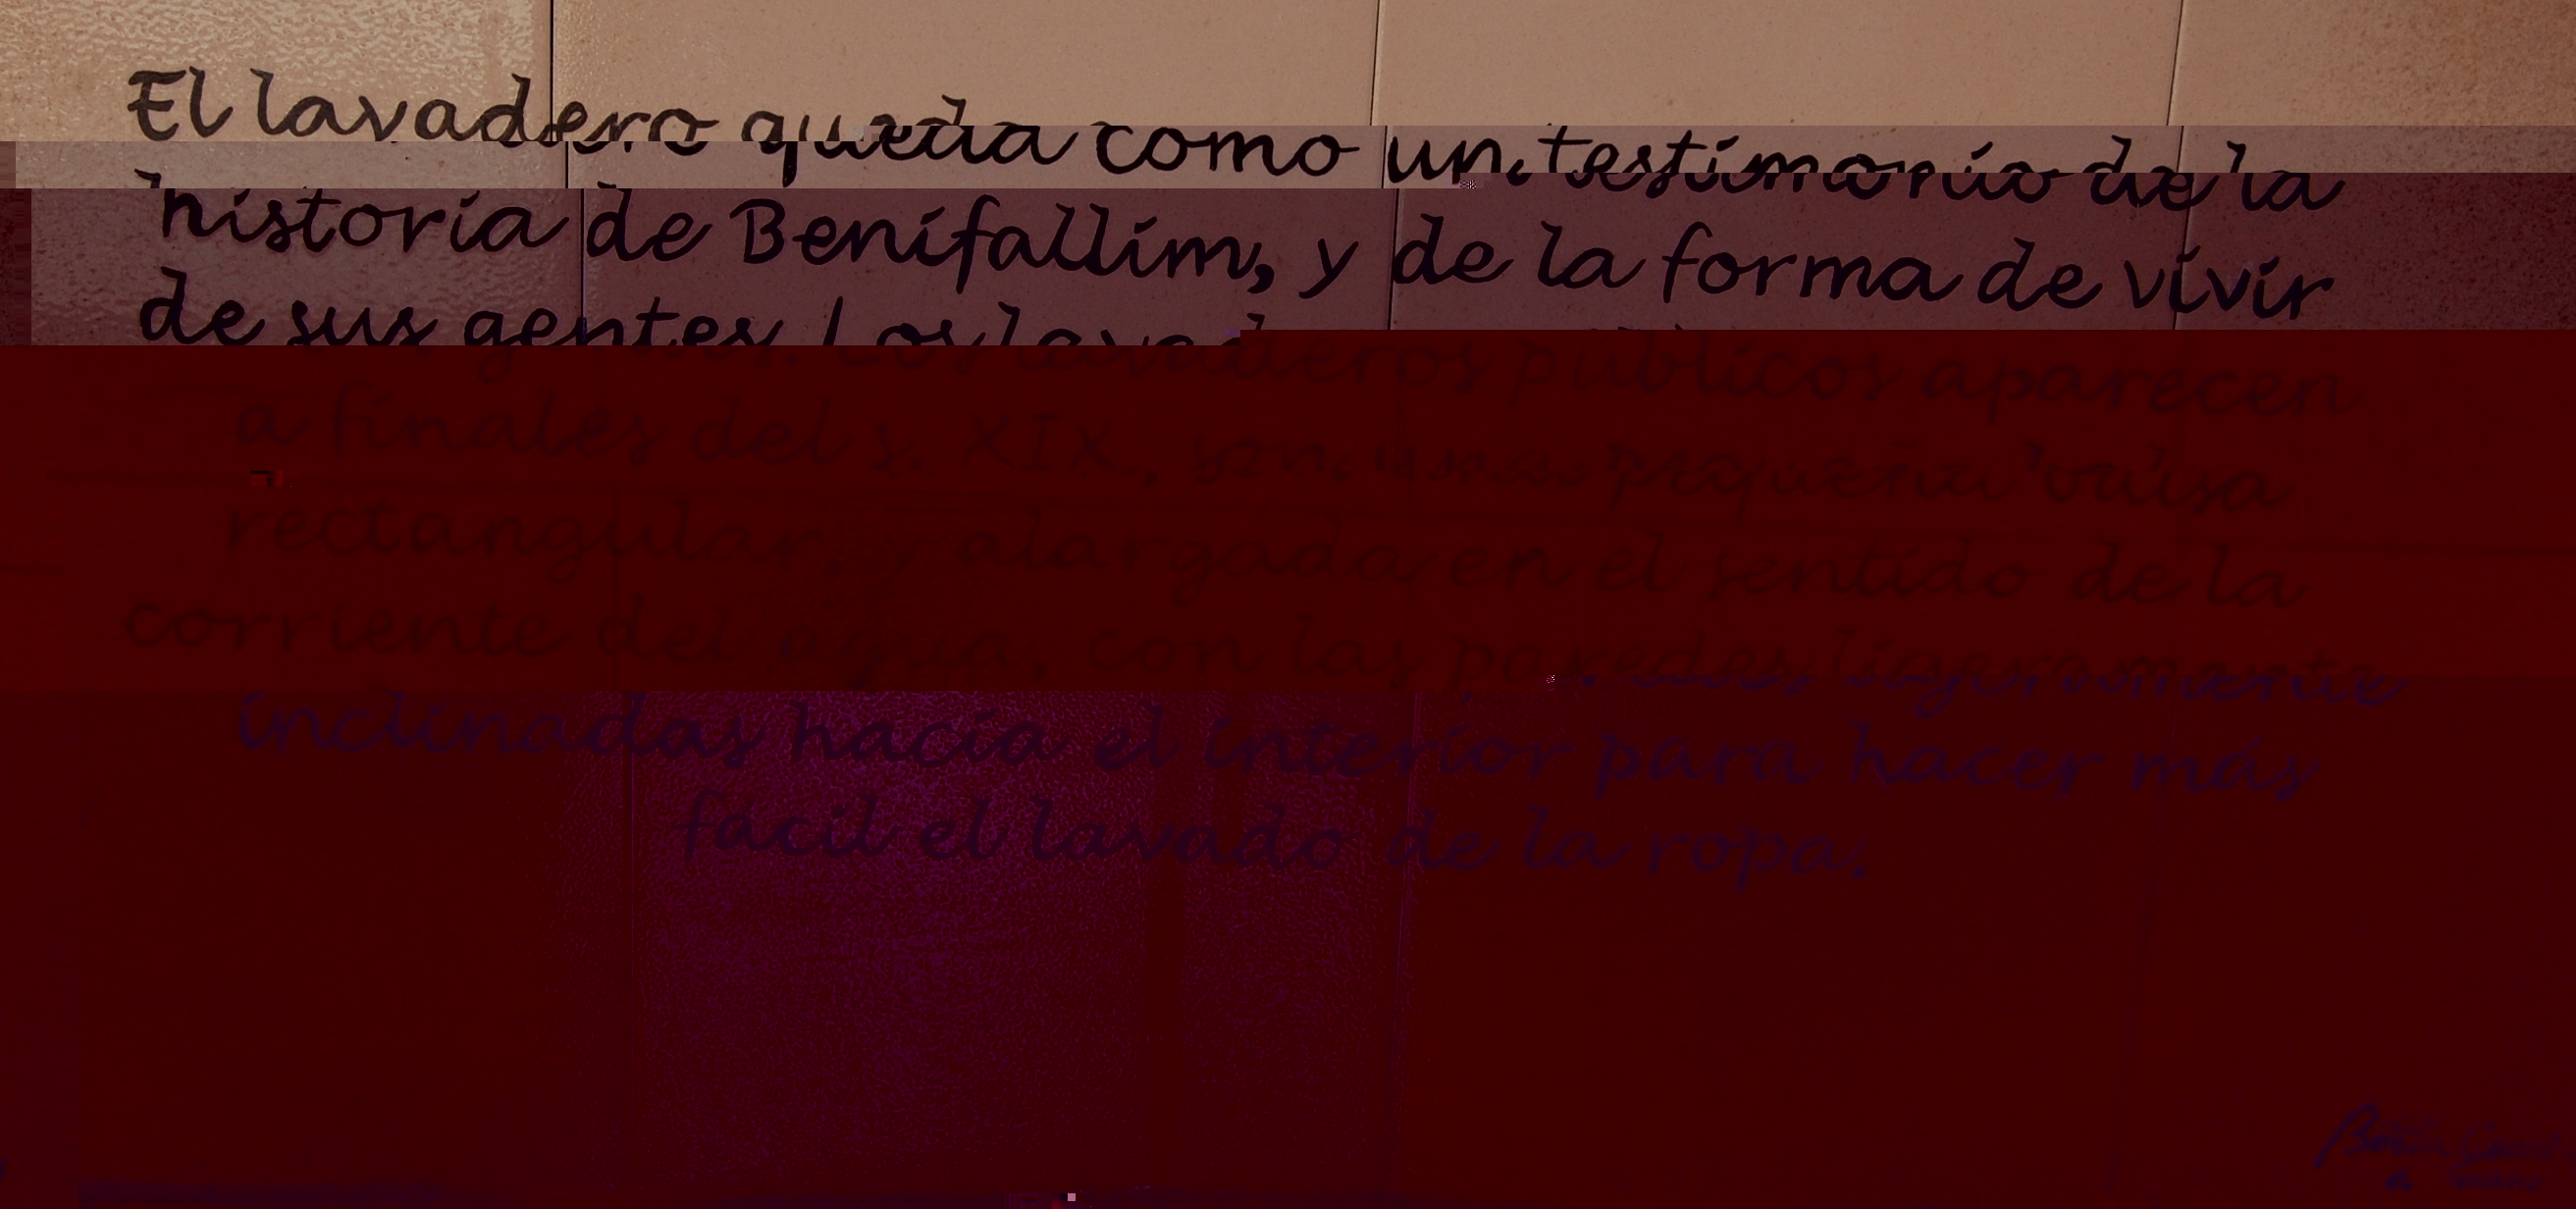 El lavadero queda como un testimonio de la
historia de Benifallim, y de la forma de vivir
de sus gentes. Los lavaderos públicos aparecen
a finales del s. XIX., son una pequeña balsa
rectangular y alargada en el sentido de la
corriente del agua, con las paredes ligeramente
inclinadas hacia el interior para hacer más
fácil el lavado de la ropa.